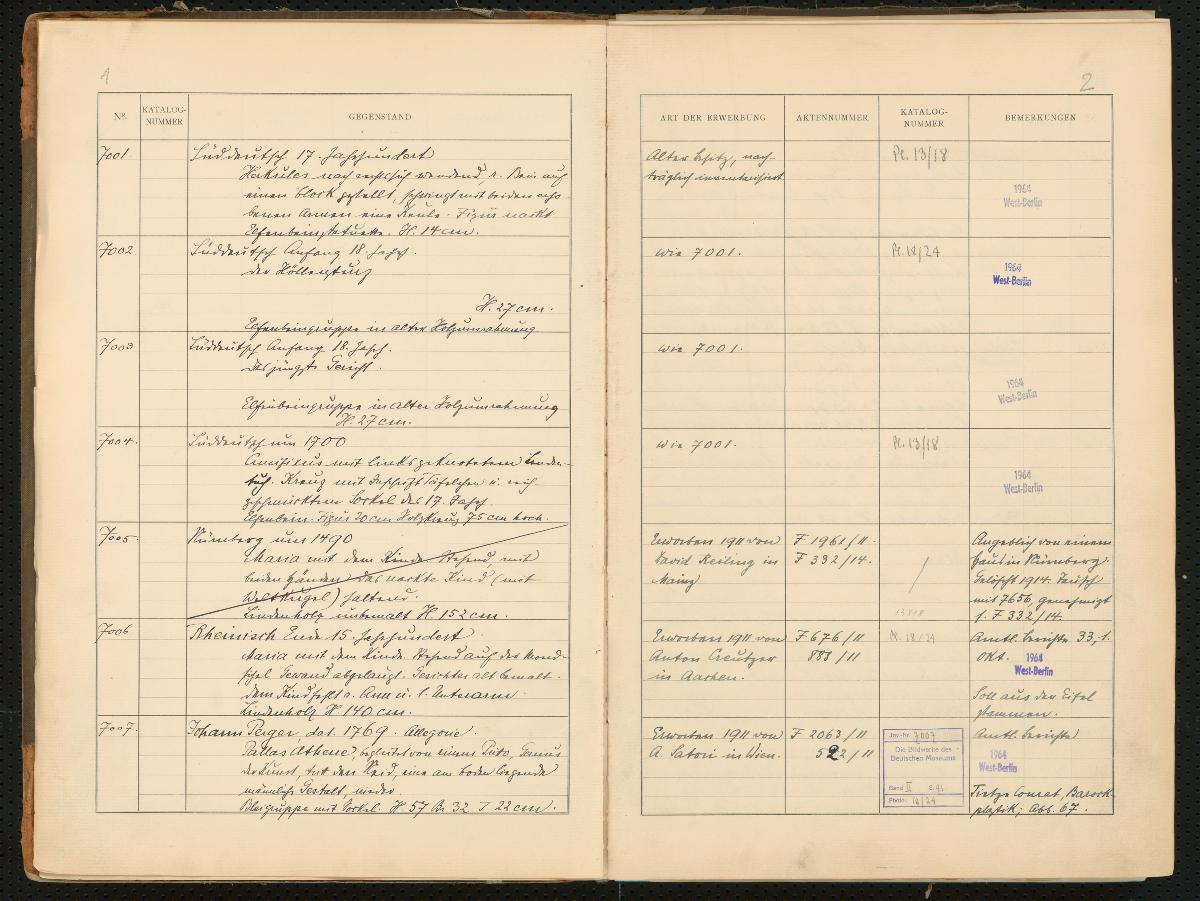 1
Nº.
KATALOG-
NUMMER
GEGENSTAND
7001.
Süddeutsch 17. Jahrhundert
Herkules nach rechts sich wendend, r. Bein auf
einen Block gestellt, schwingt mit beiden erho-
benen Armen eine Keule. Figur nackt
Elfenbeinstatuette. H. 14 cm.
7002
Süddeutsch Anfang 18. Jahrh.
der Höllensturz
H. 27 cm.
Elfenbeingruppe in alter Holzumrahmung
7003
Süddeutsch Anfang 18. Jahrh.
das jüngste Gericht.
Elfenbeingruppe in alter Holzumrahmung
H. 27 cm.
7004.
Süddeutsch um 1700
Crucifixus mit links geknotetem Lenden-
tuch. Kreuz mit Inschrift Täfelchen u. reich
geschmücktem Sockel des 17. Jahrh.
Elfenbein. Figur 30 cm Holzkreuz 75 cm hoch.
7005.
Nürnberg um 1490
Maria mit dem Kinde stehend, mit
beiden Händen das nackte Kind (mit
Weltkugel) haltend.
Lindenholz unbemalt H. 152 cm.
7006
Rheinisch Ende 15. Jahrhundert
Maria mit dem Kinde stehend auf der Mond-
sichel Gewand abgelaugt. Gesichter alt bemalt.
dem Kind fehlt r. Arm u. l. Unterarm.
Lindenholz H. 140 cm.
7007.
Johann Perger, dat. 1769. Allegorie.
Pallas Athene, begleitet von einem Puto, Genius
der Kunst, tritt den Neid, eine am Boden liegende
männliche Gestalt, nieder.
Bleigruppe mit Sockel. H 57 Br 32 T 22 cm.
2
ART DER ERWERBUNG
AKTENNUMMER
KATALOG-
NUMMER
BEMERKUNGEN
Alter Besitz, nach-
träglich inventarisirt
Pl. 13/18
1964
West-Berlin
wie 7001.
Pl. 18/24
1964
West-Berlin
wie 7001.
1964
West-Berlin
wie 7001.
Pl. 13/18
1964
West-Berlin
Erworben 1911 von
David Reiling in
Mainz
F 1961/11.
F 332/14.
13/18
Angeblich von einem
Haus in Nürnberg.
Gelöscht 1914. Tausch
mit 7656, genehmigt
s. F 332/14.
Erworben 1911 von
Anton Creutzer
in Aachen.
F 676/11
881/11
Pl. 18/24
Amtl. Berichte 33, 1.
Okt.
1964
West-Berlin
Soll aus der Eifel
stammen.
Erworben 1911 von
A. Satori in Wien.
F 2063/11
522/11
Inv.-Nr. 7007
Die Bildwerke des
Deutschen Museums
Band II S. 91
Photo: 18/24
Amtl. Berichte
1964
West-Berlin
Tietze Conrat, Barock-
plastik; Abb. 67.